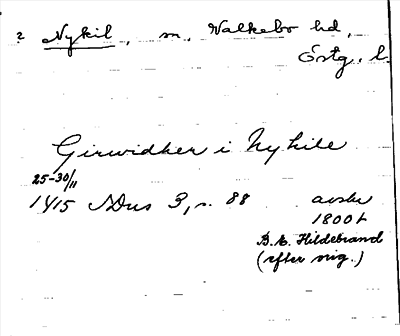 2 Nykil, sn, Valkebo hd,
Östg. l.
Girwidher i Nykile
25-30/11
1415 SDns 3, s. 88 avskr
1800t
B. E. Hildebrand
(efter orig.)